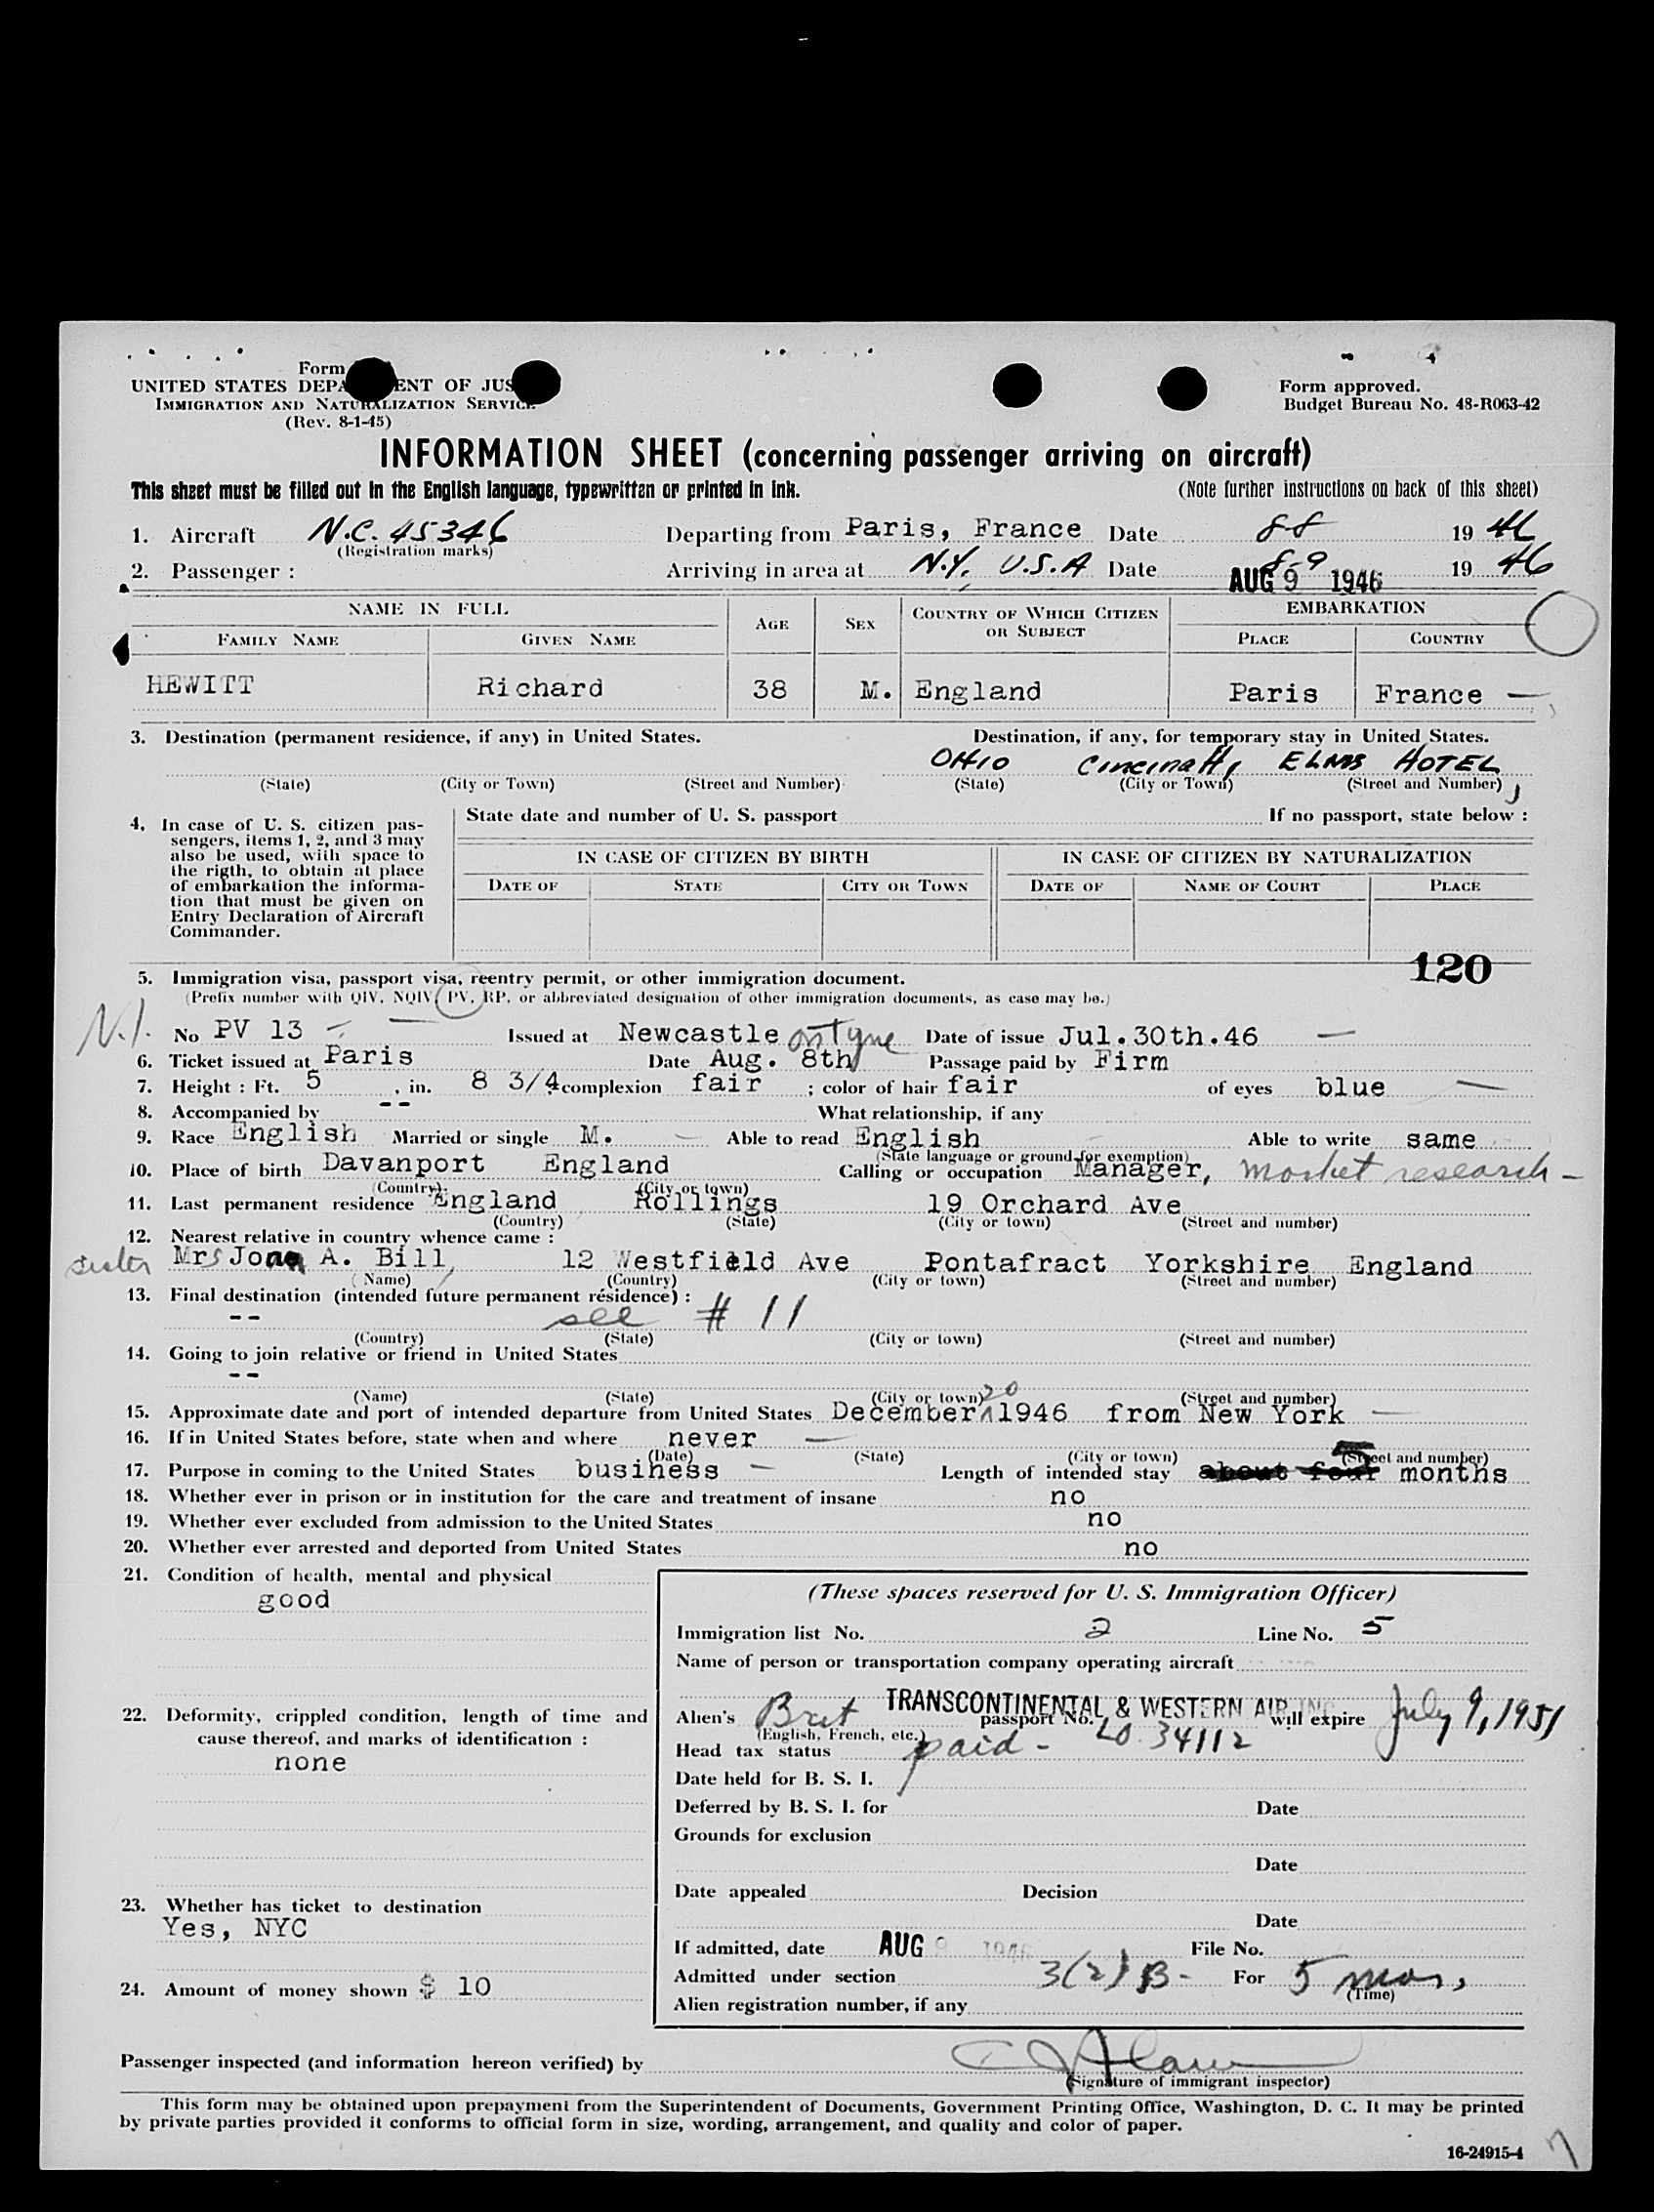 Form
UNITED STATES DEPA ENT OF JUS
IMMIGRATION AND NATURALIZATION SERVICE
(Rev. 8-1-45)
Form approved.
Budget Bureau No. 48-R063-42
INFORMATION SHEET (concerning passenger arriving on aircraft)
This sheet must be filled out in the English language, typewritten or printed in ink. (Note further instructions on back of this sheet)
1. Aircraft N.C. 45346 Departing from Paris, France Date 8-8 19 46
(Registration marks)
2. Passenger : Arriving in area at N.Y. U.S.A Date 8-9 19 46
AUG 9 1946
NAME IN FULL AGE SEX COUNTRY OF WHICH CITIZEN OR SUBJECT EMBARKATION
FAMILY NAME GIVEN NAME PLACE COUNTRY
HEWITT Richard 38 M. England Paris France —
3. Destination (permanent residence, if any) in United States. Destination, if any, for temporary stay in United States.
OHIO Cincinatti ELMS HOTEL
(State) (City or Town) (Street and Number) (State) (City or Town) (Street and Number)
4. In case of U. S. citizen pas-
sengers, items 1, 2, and 3 may
also be used, with space to
the rigth, to obtain at place
of embarkation the informa-
tion that must be given on
Entry Declaration of Aircraft
Commander.
State date and number of U. S. passport If no passport, state below :
IN CASE OF CITIZEN BY BIRTH IN CASE OF CITIZEN BY NATURALIZATION
DATE OF STATE CITY OR TOWN DATE OF NAME OF COURT PLACE
120
5. Immigration visa, passport visa, reentry permit, or other immigration document.
(Prefix number with QIV, NQIV, PV, RP, or abbreviated designation of other immigration documents, as case may be.)
N.I. No PV 13 — Issued at Newcastle on Tyne Date of issue Jul.30th.46 —
6. Ticket issued at Paris Date Aug. 8th Passage paid by Firm
7. Height : Ft. 5 , in. 8 3/4 complexion fair ; color of hair fair of eyes blue —
8. Accompanied by -- What relationship, if any
9. Race English Married or single M. — Able to read English Able to write same
(State language or ground for exemption)
10. Place of birth Davanport England Calling or occupation Manager, market research -
(Country) (City or town)
11. Last permanent residence England Rollings 19 Orchard Ave
(Country) (State) (City or town) (Street and number)
12. Nearest relative in country whence came :
sister Mrs Joan A. Bill, 12 Westfield Ave Pontafract Yorkshire England
(Name) (Country) (City or town) (Street and number)
13. Final destination (intended future permanent résidence) :
-- see # 11
(Country) (State) (City or town) (Street and number)
14. Going to join relative or friend in United States
--
(Name) (State) (City or town) (Street and number)
15. Approximate date and port of intended departure from United States December 20 1946 from New York —
16. If in United States before, state when and where never —
(Date) (State) (City or town) (Street and number)
17. Purpose in coming to the United States business — Length of intended stay about four 5 months
18. Whether ever in prison or in institution for the care and treatment of insane no
19. Whether ever excluded from admission to the United States no
20. Whether ever arrested and deported from United States no
21. Condition of health, mental and physical
good
22. Deformity, crippled condition, length of time and
cause thereof, and marks of identification :
none
23. Whether has ticket to destination
Yes, NYC
24. Amount of money shown $ 10
(These spaces reserved for U. S. Immigration Officer)
Immigration list No. 2 Line No. 5
Name of person or transportation company operating aircraft
TRANSCONTINENTAL & WESTERN AIR INC
Alien's Brit passport No. LO 34112 will expire July 9, 1951
(English, French, etc.)
Head tax status paid -
Date held for B. S. I.
Deferred by B. S. I. for Date
Grounds for exclusion
Date
Date appealed Decision
Date
If admitted, date AUG 9 1946 File No.
Admitted under section 3(2) B - For 5 mos,
(Time)
Alien registration number, if any
Passenger inspected (and information hereon verified) by
(Signature of immigrant inspector)
This form may be obtained upon prepayment from the Superintendent of Documents, Government Printing Office, Washington, D. C. It may be printed
by private parties provided it conforms to official form in size, wording, arrangement, and quality and color of paper.
16-24915-4